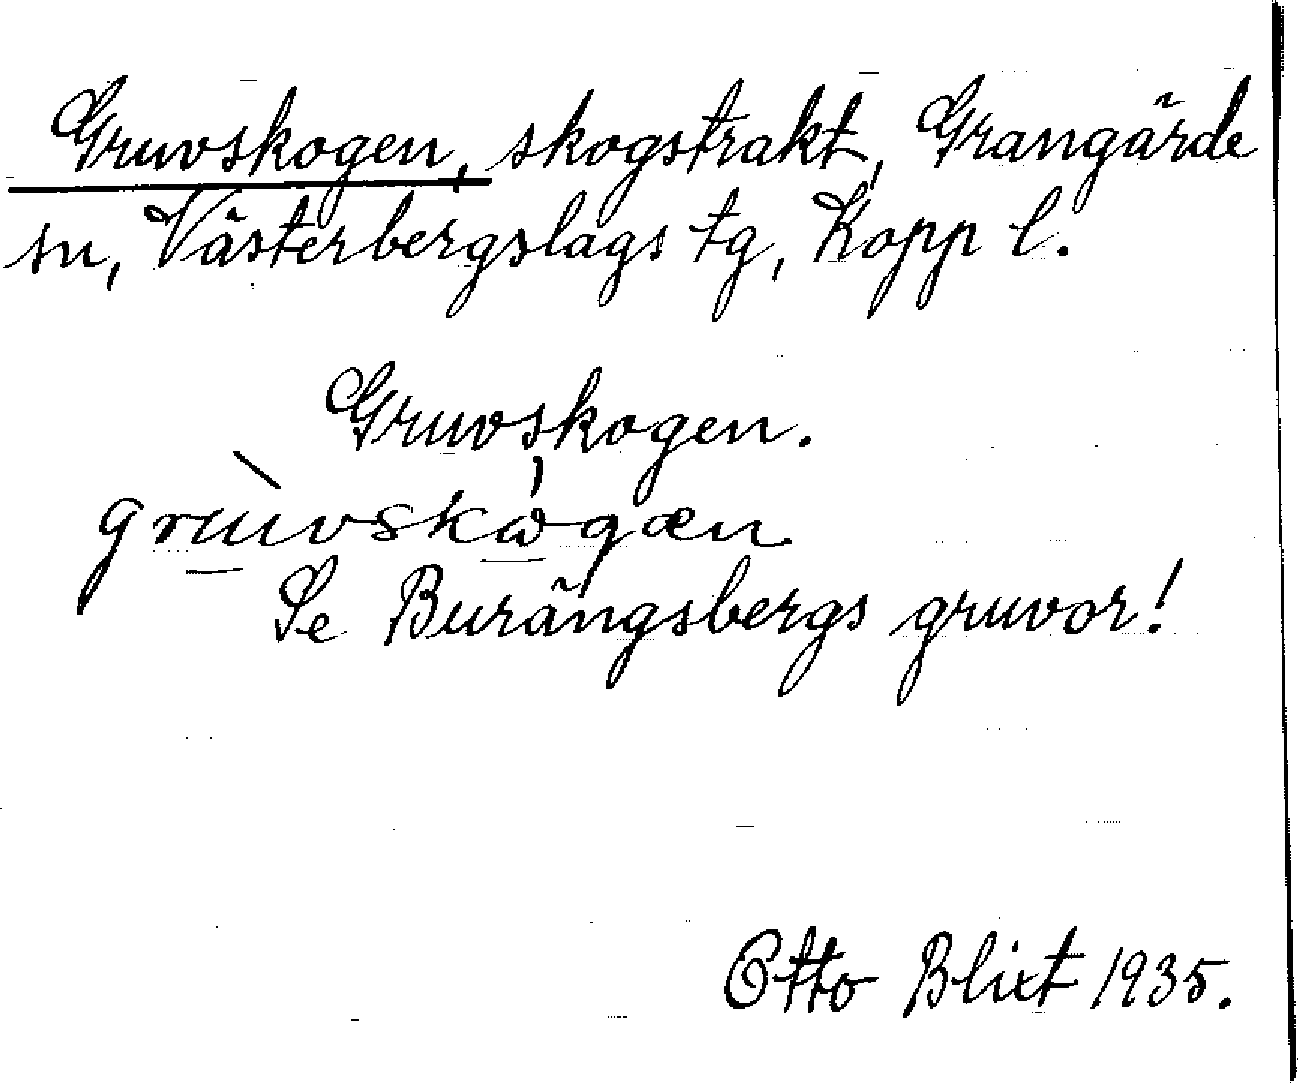 Gruvskogen, skogstrakt, Grangärde
sn, Västerbergslags tg, Kopp l.
Gruvskogen.
grùvskωgæn
Se Burängsbergs gruvor!
Otto Blixt 1935.